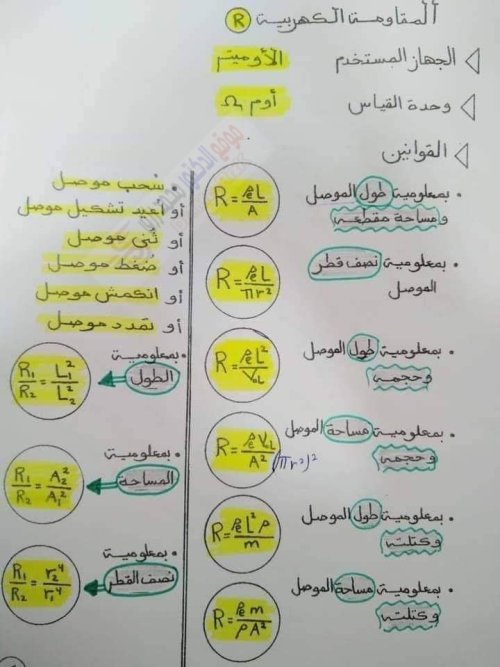 المقاومة الكهربية R
الجهاز المستخدم الأوميتر
وحدة القياس أوم Ω
القوانين
• بمعلومية طول الموصل
ومساحة مقطعه
R = ρₑL / A
• بمعلومية نصف قطر
الموصل
R = ρₑL / πr²
• بمعلومية طول الموصل
وحجمه
R = ρₑL² / VoL
• بمعلومية مساحة الموصل
وحجمه
R = ρₑVoL / A²
(πr²)²
• بمعلومية طول الموصل
وكتلته
R = ρₑL²ρ / m
• بمعلومية مساحة الموصل
وكتلته
R = ρₑm / ρA²
• سُحب موصل
أو أعيد تشكيل موصل
أو ثنى موصل
أو ضغط موصل
أو انكمش موصل
أو تمدد موصل
• بمعلومية
الطول
R₁ / R₂ = L₁² / L₂²
• بمعلومية
المساحة
R₁ / R₂ = A₂² / A₁²
• بمعلومية
نصف القطر
R₁ / R₂ = r₂⁴ / r₁⁴